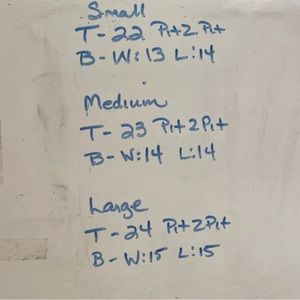 Small
T-22 Pit2Pit
B-W:13 L:14
Medium
T-23 Pit2Pit
B-W:14 L:14
Large
T-24 Pit2Pit
B-W:15 L:15